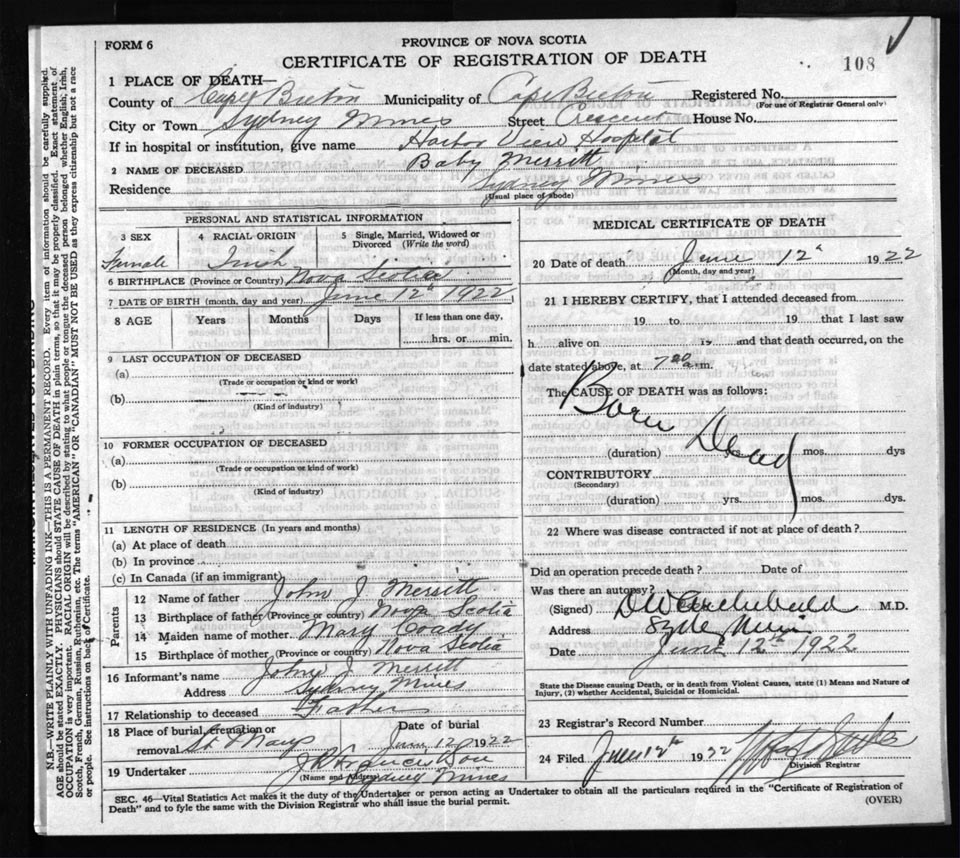 FORM 6
PROVINCE OF NOVA SCOTIA
CERTIFICATE OF REGISTRATION OF DEATH
108
1 PLACE OF DEATH—
County of Cape Breton Municipality of Cape Breton Registered No.
(For use of Registrar General only)
City or Town Sydney Mines Street Crescent House No.
If in hospital or institution, give name Harbor View Hospital
2 NAME OF DECEASED Baby Merritt
Residence Sydney Mines
(Usual place of abode)
PERSONAL AND STATISTICAL INFORMATION
3 SEX 4 RACIAL ORIGIN 5 Single, Married, Widowed or
Divorced (Write the word)
Female Irish
6 BIRTHPLACE (Province or Country) Nova Scotia
7 DATE OF BIRTH (month, day and year) June 12th 1922
8 AGE Years Months Days If less than one day,
hrs. or min.
9 LAST OCCUPATION OF DECEASED
(a)
(Trade or occupation or kind or work)
(b)
(Kind of industry)
10 FORMER OCCUPATION OF DECEASED
(a)
(Trade or occupation or kind of work)
(b)
(Kind of industry)
11 LENGTH OF RESIDENCE (In years and months)
(a) At place of death
(b) In province
(c) In Canada (if an immigrant)
Parents
12 Name of father John J Merritt
13 Birthplace of father (Province or country) Nova Scotia
14 Maiden name of mother Mary Coady
15 Birthplace of mother (Province or country) Nova Scotia
16 Informant's name John J Merritt
Address Sydney Mines
17 Relationship to deceased Father
18 Place of burial, cremation or Date of burial
removal St Marys June 12 1922
19 Undertaker
(Name and address) Sydney Mines
MEDICAL CERTIFICATE OF DEATH
20 Date of death June 12th 1922
(Month, day and year)
21 I HEREBY CERTIFY, that I attended deceased from
19 to 19 that I last saw
h alive on 19 and that death occurred, on the
date stated above, at 7 20 a.m.
The CAUSE OF DEATH was as follows:
Born Dead
(duration) mos. dys
CONTRIBUTORY
(Secondary)
(duration) yrs. mos. dys.
22 Where was disease contracted if not at place of death?
Did an operation precede death? Date of
Was there an autopsy?
(Signed) D W Archibald M.D.
Address Sydney Mines
Date June 12th 1922
State the Disease causing Death, or in death from Violent Causes, state (1) Means and Nature of
Injury, (2) whether Accidental, Suicidal or Homicidal.
23 Registrar's Record Number
24 Filed June 12th 1922
Division Registrar
SEC. 46—Vital Statistics Act makes it the duty of the Undertaker or person acting as Undertaker to obtain all the particulars required in the "Certificate of Registration of
Death" and to fyle the same with the Division Registrar who shall issue the burial permit.
(OVER)
N.B.—WRITE PLAINLY WITH UNFADING INK—THIS IS A PERMANENT RECORD. Every item of information should be carefully supplied.
AGE should be stated EXACTLY. PHYSICIANS should STATE CAUSE OF DEATH in plain terms, so that it may be properly classified. Exact statement of
OCCUPATION is very important. RACIAL ORIGIN will be described by stating to what people or tongue the deceased person belonged, whether English, Irish,
Scotch, French, German, Russian, Ruthenian, etc. The terms "AMERICAN" OR "CANADIAN" MUST NOT BE USED as they express citizenship but not a race
or people. See instructions on back of Certificate.